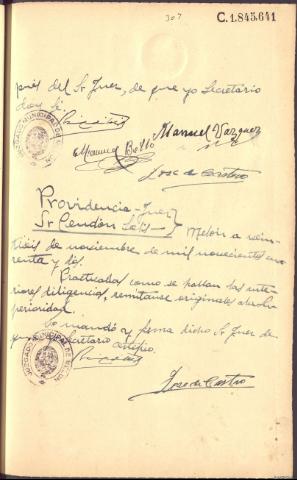 307
C.1.845.641
pués del Sr Juez, de que yo Secretario
doy fé
Manuel Vazquez
Manuel Bello
Jose de Castro
JUZGADO MUNICIPAL DE MELON
Providencia - Juez
Sr Cendón
Melón a vein-
tiseis de noviembre de mil novecientos cua-
renta y dos.
Practicadas como se hallan las ante-
riores diligencias, remitanse originales a la Su-
perioridad.
Lo mandó y firma dicho Sr Juez de
que Secretario certifico
JUZGADO MUNICIPAL DE MELON
Jose de Castro